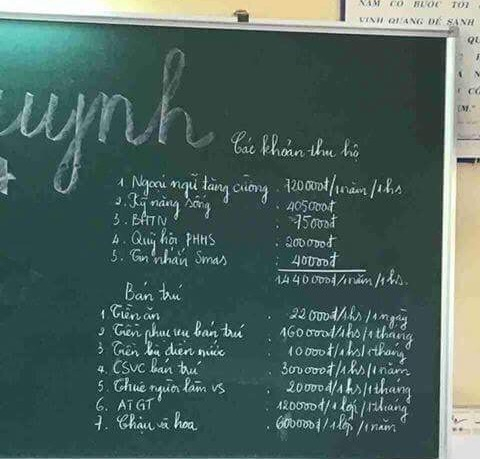 NĂM CÓ BƯỚC TỚI
VINH QUANG ĐỂ SÁNH
QU
uynh
Các khoản thu hộ
1. Ngoại ngữ tăng cường : 720000đ/1năm/1hs
2. Kỹ năng sống : 405000đ
3. BHTN : 75000đ
4. Quỹ hội PHHS : 200000đ
5. Tin nhắn Smas : 40000đ
1440000đ/1năm/1hs.
Bán trú
1 Tiền ăn : 22000đ/1hs/1ngày
2 Tiền phục vụ bán trú : 160000đ/1hs/1tháng
3 Tiền bù điện nước : 10000đ/1hs/1tháng
4. CSVC bán trú : 300000đ/1hs/1năm
5. Thuê người làm vs : 20000đ/1hs/1tháng
6. ATGT : 120000đ/1lớp/1tháng
7. Chậu và hoa : 600000đ/1lớp/1năm